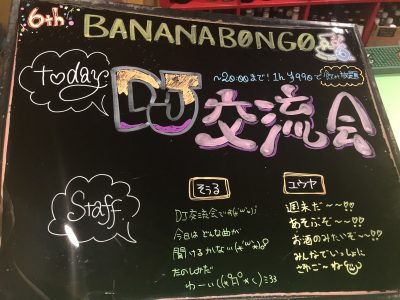 6th
BANANABONGO
today
DJ交流会
〜20:00まで！1h ¥990で飲み放題
Staff
そうる
DJ交流会でっす
今日はどんな曲が
聞けるかない
たのしみだ
わーい
ユウヤ
週末だ〜〜!!
あそぶぞ〜〜!!
お酒のみたいぞ〜〜!!
みんなでいっしょに
さわご〜ね